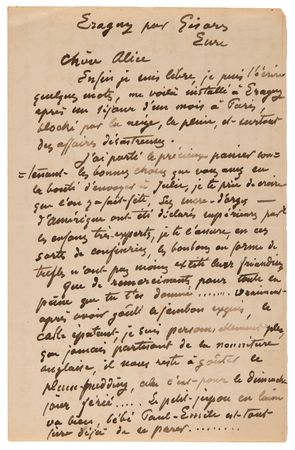 Eragny par Gisors
Eure
Chère Alice
Enfin je suis libre, je puis t'écrire
quelques mots, me voilà installé à Eragny
après un séjour d'un mois à Paris,
bloqué par la neige, la pluie, et surtout
des affaires désastreuses.
J'ai porté le précieux panier con-
tenant les bonnes choses que vous avez eu
la bonté d'envoyer à Julie, je te prie de croire
que l'on a fait fête, les sucre-d'orges
d'Amérique ont été déclarés supérieurs par
les enfants très-experts, je te l'assure, en ces
sortes de confiseries, les bonbons en forme de
trèfles n'ont pas moins excité leur friandise
Que de remerciments pour toute la
peine que tu t'es donné........ vraiment
après avoir goûté le jambon exquis, le
cake épatant, je suis personnellement plus
que jamais partisan de la nourriture
anglaise, il nous reste à goûter le
plum-pudding, cela c'est pour le dimanche
jour férié..... Le petit-jupon en laine
va bien, bébé Paul-Emile est tout
fier déjà de se parer.........